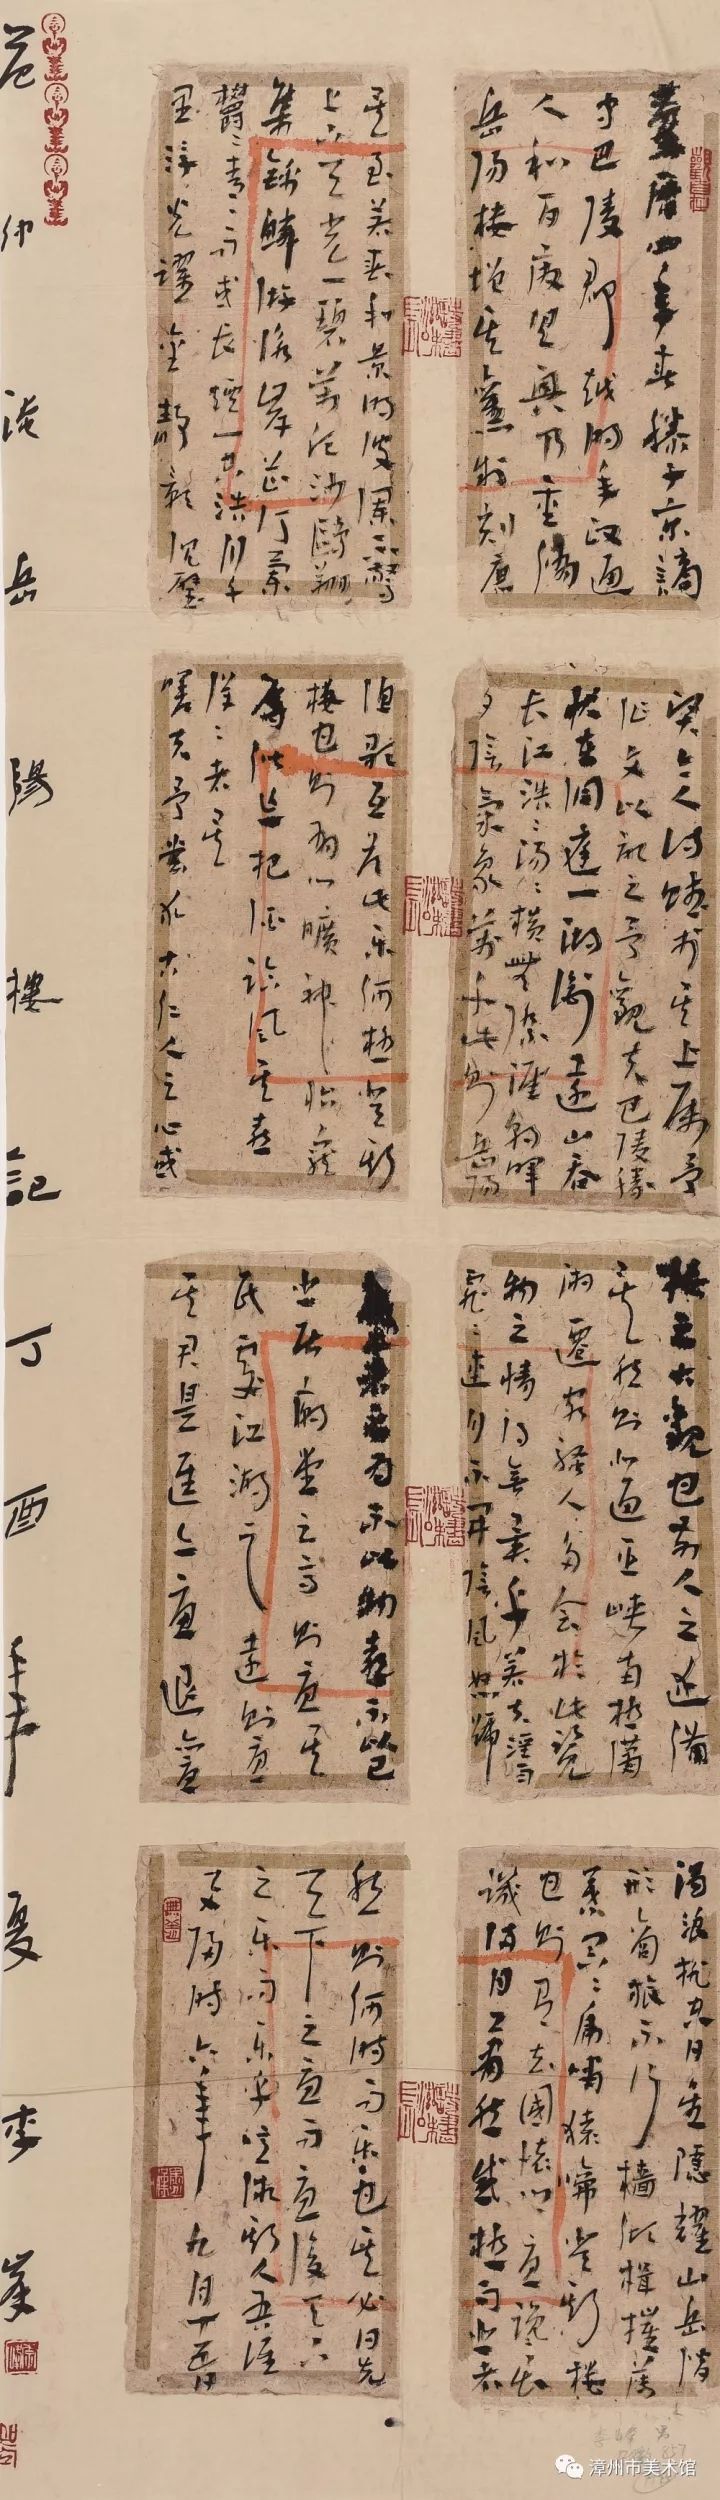 慶曆四年春滕子京謫
守巴陵郡越明年政通
人和百廢具興乃重脩
岳陽樓增其舊制刻唐
賢今人詩賦於其上屬予
作文以記之予觀夫巴陵勝
狀在洞庭一湖銜遠山吞
長江浩浩湯湯橫無際涯朝暉
夕陰氣象萬千此則岳陽
樓之大觀也前人之述備
矣然則北通巫峽南極瀟
湘遷客騷人多會於此覽
物之情得無異乎若夫淫雨
霏霏連月不開陰風怒號
濁浪排空日星隱耀山岳潛
形商旅不行檣傾楫摧薄
暮冥冥虎嘯猿啼登斯樓
也則有去國懷鄉憂讒畏
譏滿目蕭然感極而悲者
矣至若春和景明波瀾不驚
上下天光一碧萬頃沙鷗翔
集錦鱗游泳岸芷汀蘭
鬱鬱青青而或長煙一空皓月千
里浮光躍金靜影沉璧
漁歌互答此樂何極登斯
樓也則有心曠神怡寵
辱偕忘把酒臨風其喜
洋洋者矣
嗟夫予嘗求古仁人之心或
為不以物喜不以己
悲居廟堂之高則憂其
民處江湖之遠則憂
其君是進亦憂退亦憂
然則何時而樂也其必曰先
天下之憂而憂後天下
之樂而樂乎噫微斯人吾誰
與歸時六年九月十五日
范仲淹岳陽樓記丁酉年夏李峯
漳州市美术馆